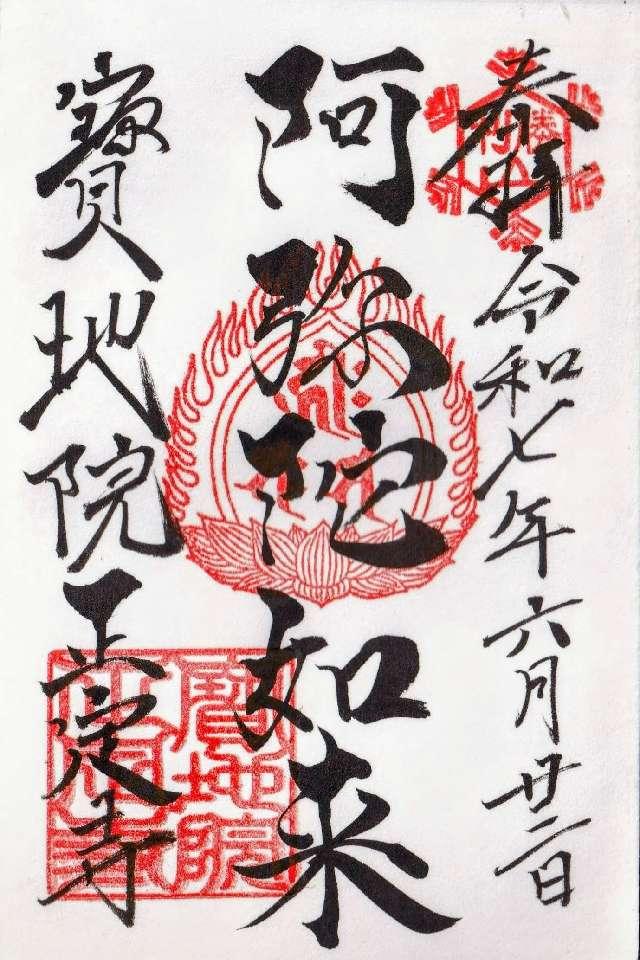 奉拝
令和七年六月廿二日
阿弥陀如来
寳地院正定寺
寳地院
正定寺